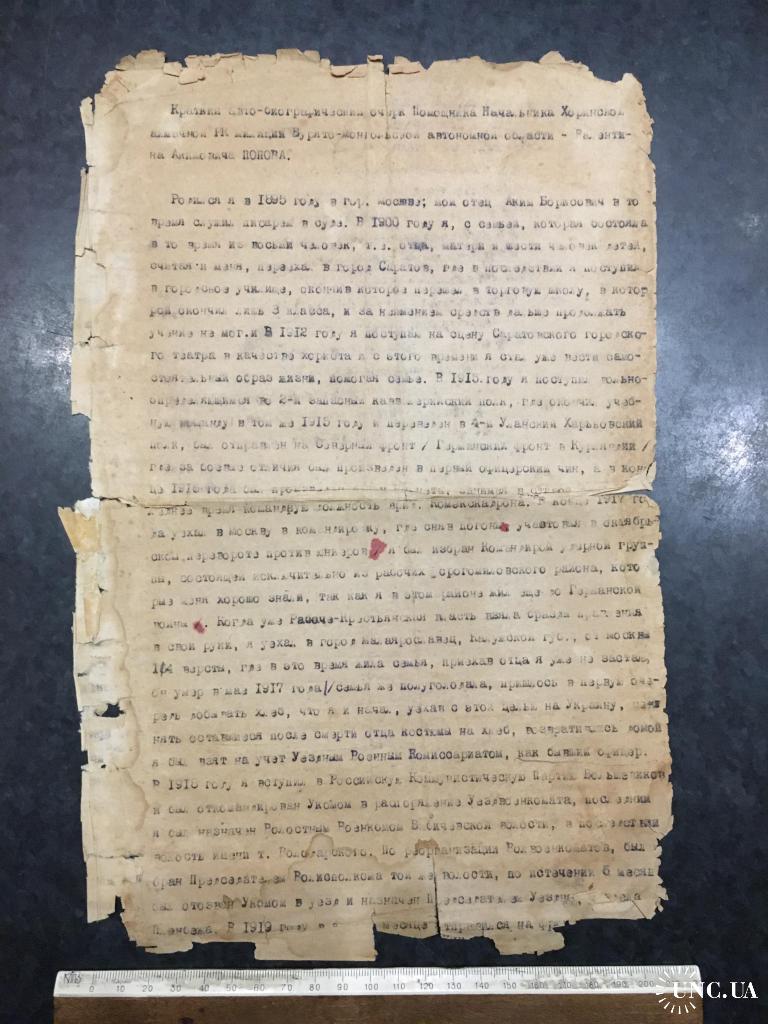 Краткий авто-биографический очерк Помощника Начальника Хоринской
аймачной РК милиции Бурято-монгольской автономной области - Валенти-
на Акимовича ПОПОВА.
Родился я в 1895 году в гор. москве; мой отец Аким Борисович в то
время служил писарем в суде. В 1900 году я, с семьей, которая состояла
в то время из восьми человек, т.е. отца, матери и шести человек детей,
считая и меня, переехал в город Саратов, где в последствии я поступил
в городское училище, окончив которое перешел в торговую школу, в котор
рой окончил лишь 3 класса, и за неимением средств дальше продолжать
учение не мог.и В 1912 году я поступил на сцену Саратовского городско-
го театра в качестве хориста и с этого времени я стал уже вести само-
стоятельный образ жизни, помогая семье. В 1915 году я поступил вольно-
определяющимся во 2-й запасный кавалерийский полк, где окончил учеб-
ную команду в том же 1915 году и переведен в 4-й Уланский Харьковский
полк, был отправлен на Северный фронт / Германский фронт в Курляндии /
где за боевые отличия был произведен в первый офицерский чин, а в кон-
це 1916 года был
леднее время командную должность врид. Комэскадрона. В конце 1917 го
да уехал в Москву в командировку, где сняв погоны, участвовал в октябрь
ском перевороте против юнкеров, я был избран Командиром ударной груп-
пы, состоящей исключительно из рабочих дорогомиловского района, кото
рые меня хорошо знали, так как я в этом районе жил еще до Германской
войны. Когда уже Рабоче-Крестьянская власть взяла бразды правления
в свои руки, я уехал в город малаярославец, Калужской губ., от москвы
114 версты, где в это время жила семья, приехав отца я уже не застал,
он умер в мае 1917 года/, семья же полуголодала, пришлось в первую оче-
редь добывать хлеб, что я и начал, уехав с этой целью на Украину,
нять оставшиеся после смерти отца костюмы на хлеб, возвратившись домой
я был взят на учет Уездным Военным Комиссариатом, как бывший офицер.
В 1918 году я вступил в Российскую Коммунистическую Партию Большевиков
и был откомандирован Укомом в распоряжение Уездвоенкомата, последним
я был назначен Волостным Военкомом волости, в последствии
волость имени т. Володарского. По реорганизации Волвоенкоматов, был
бран Председателем Волисполкома той же волости, по истечении 6 месяц
был отозван Укомом в уезд и назначен Председателем
В 1919 году в месяце отправился на
0 10 20 30 40 50 60 70 80 90 100 110 120 130 140 150 160 170 180 190 200
UNC.UA